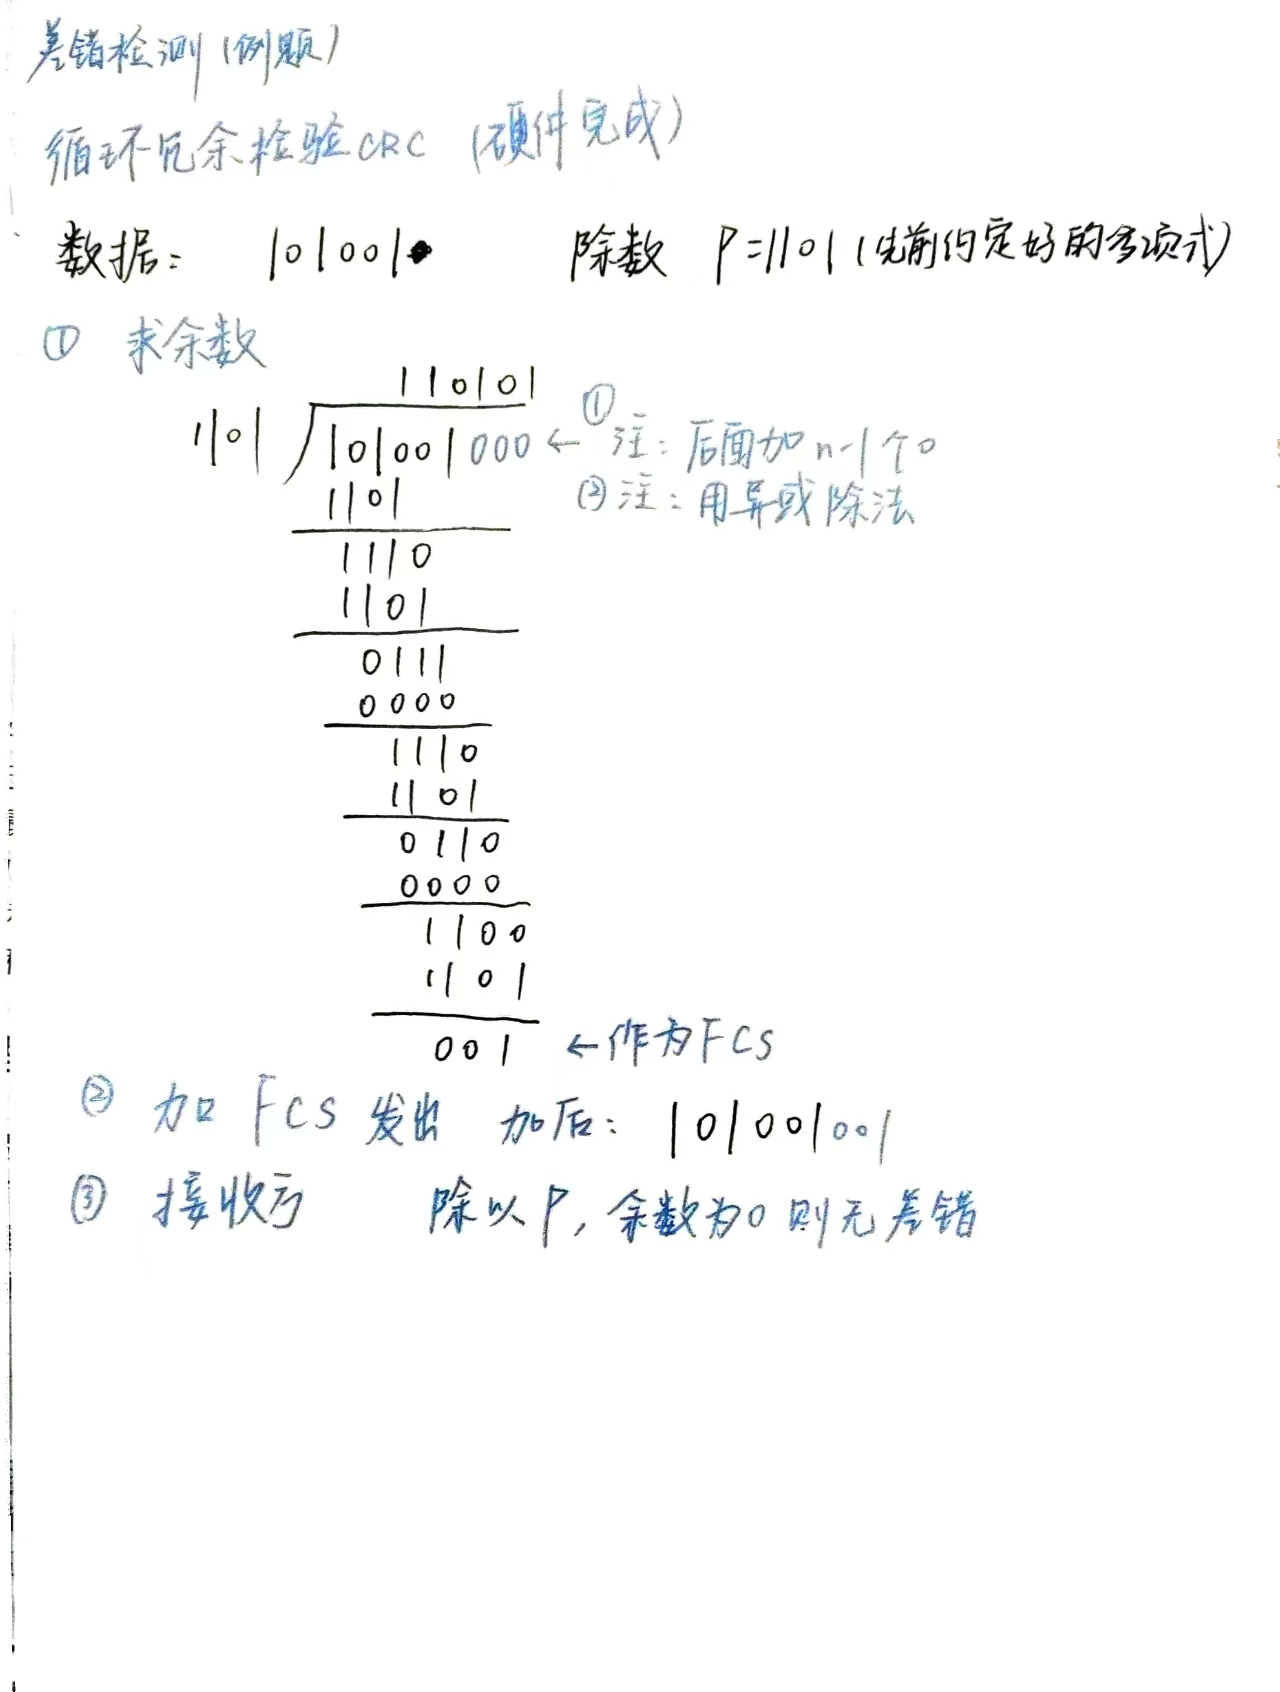 差错检测（例题）
循环冗余检验CRC （硬件完成）
数据： 101001 除数 P=1101（先前约定好的多项式）
① 求余数
110101
1101 101001000 ← ①注：后面加n-1个0
1101 ②注：用异或除法
1110
1101
0111
0000
1110
1101
0110
0000
1100
1101
001 ←作为FCS
② 加FCS发出 加后：101001001
③ 接收方 除以P，余数为0则无差错